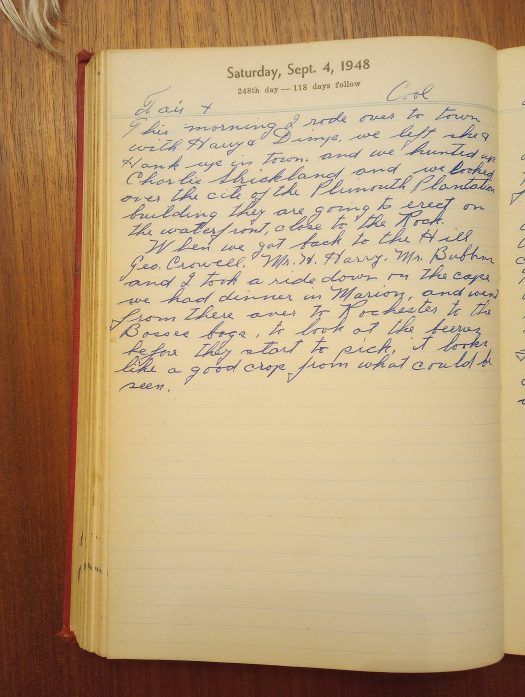 Saturday, Sept. 4, 1948
248th day — 118 days follow
Fair + Cool
This morning I rode over to town
with Harry & Dimp, we left she &
Hank up in town. and we hunted up
Charlie Strickland and we looked
over the cite of the Plymouth Plantation
building they are going to erect on
the waterfront, close to the Rock.
When we got back to the Hill
Geo. Crowell, Mr. H. Harry. Mr. Bubbin
and I took a ride down on the cape
we had dinner in Marion, and went
from there over to Rochester to the
bogs, to look at the
before they start to pick, it looks
like a good crop from what could be
seen.